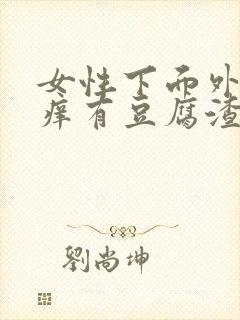 女性下面外
痒有豆腐渣
劉尚坤